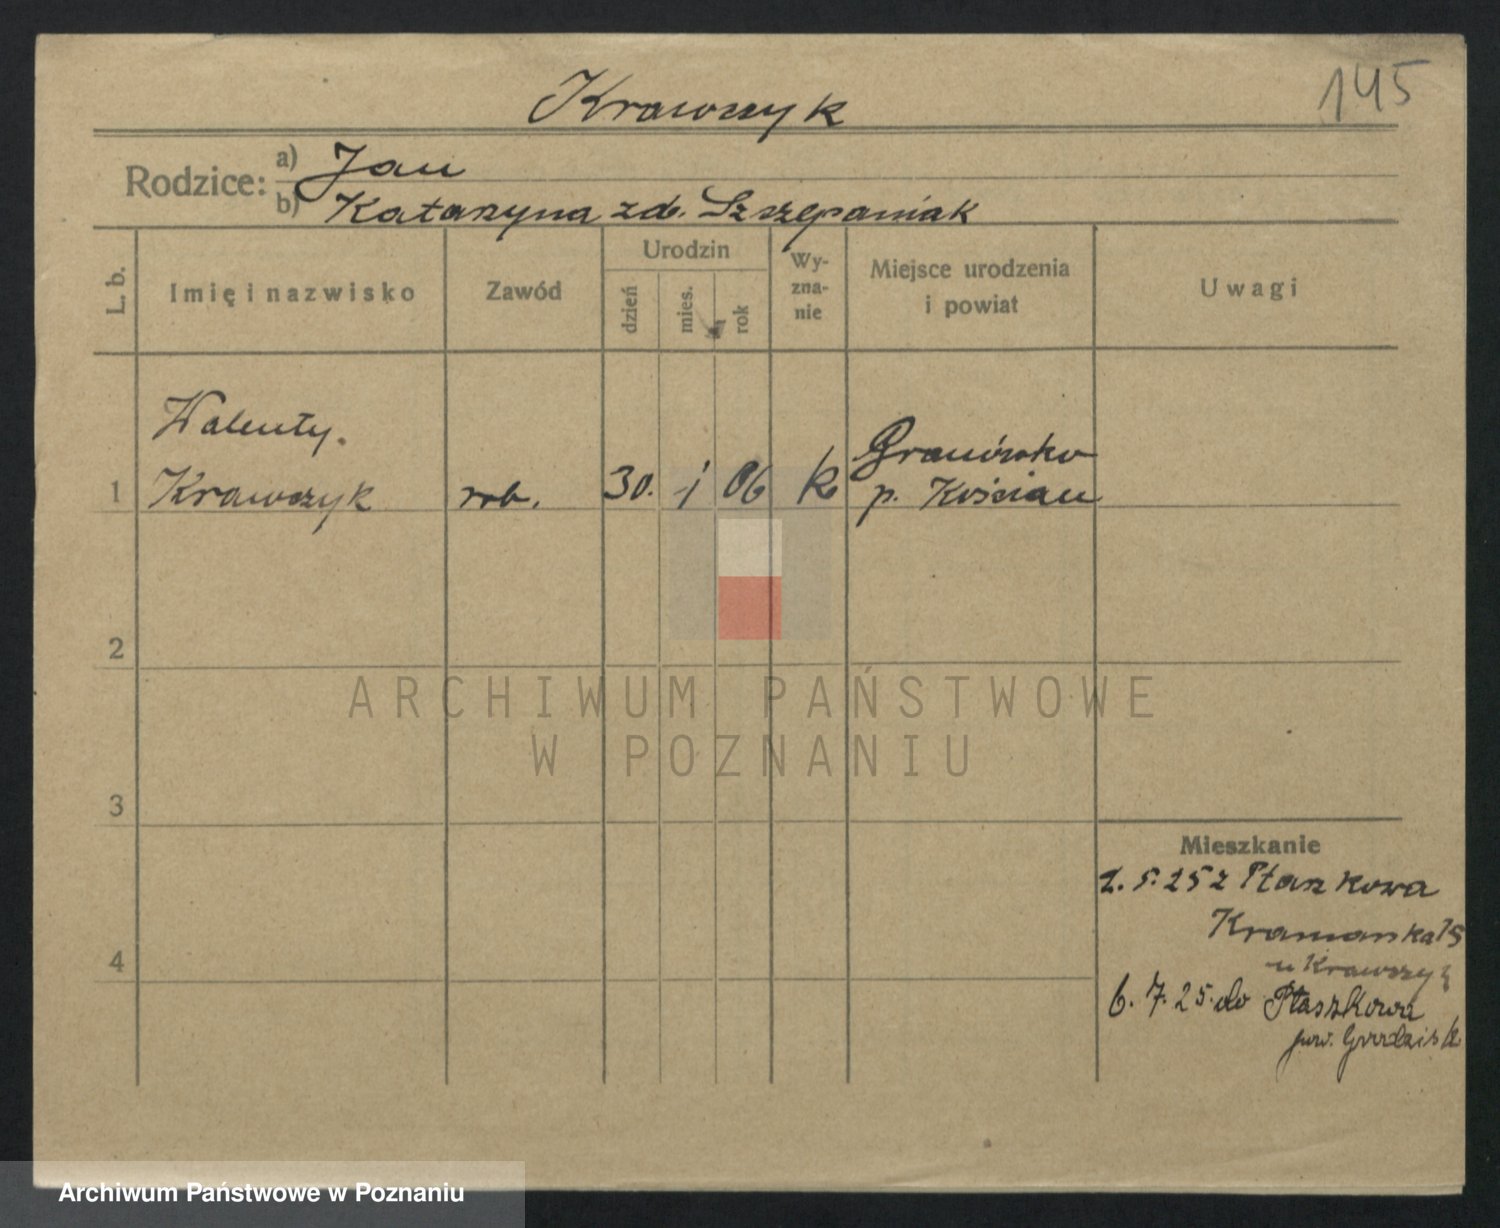 145
Krawczyk
Rodzice: a) Jan
b) Katarzyna zd. Szczepaniak
L. b. Imię i nazwisko Zawód Urodzin dzień mies. rok Wy-zna-nie Miejsce urodzenia i powiat Uwagi
Walenty.
1 Krawczyk rob. 30. 1 06 k Granówko
p. Kościan
2
3
4
Mieszkanie
2. 5. 25 z Ptaszkowa
15
u Krawczyk
6. 7. 25. do Ptaszkowa
pow. Grodzisk
ARCHIWUM PAŃSTWOWE
W POZNANIU
Archiwum Państwowe w Poznaniu